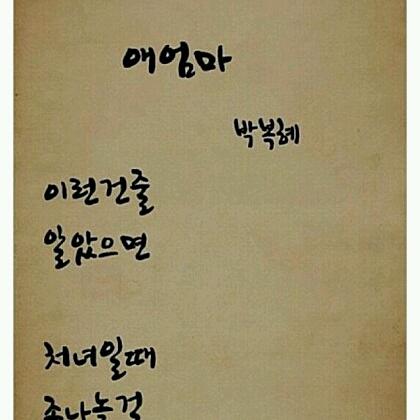 애엄마
박복혜
이런건줄
알았으면
처녀일때